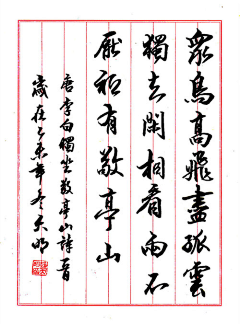 衆鳥高飛盡孤雲
獨去閑相看兩不
厭祗有敬亭山
唐李白獨坐敬亭山詩一首
歲在乙未年冬天明